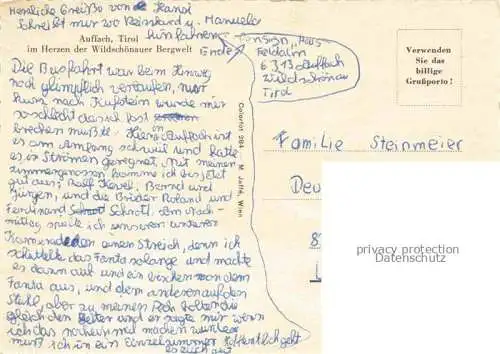 Herzliche Grüße von Hansi
Schreibt mir wo Reinhard u. Manuela
hinfahren
Auffach, Tirol
im Herzen der Wildschönauer Bergwelt
Ende
Pension Haus
Feldalm
6313 Auffach
Wildschönau
Tirol
Verwenden
Sie das
billige
Grußporto!
Die Busfahrt war beim Hinweg
noch glimpflich verlaufen, nur
kurz nach Kufstein wurde mir
so schlecht dass ich fast
brechen mußte. Hier in Auffach ist
es am Anfang schwül und hatte
es in Strömen geregnet. Mit meinen
Zimmergenossen komme ich bis jetzt
gut aus; Rolf Hevel, Bernd und
Jürgen, und die Brüder Roland und
Ferdinand Schrotl. Am Nach-
mittag spielte ich unseren
Kameraden einen Streich, denn ich
schüttelte das Fanta solange und machte
es dann auf und ein bischen von dem
Fanta aus, und dem anderen auf den
Stuhl, aber zu meinen Pech holten die
gleich den Leiter und er sagte mir wenn
ich das nocheinmal machen würde
muß ich in ein Einzelzimmer Hoffentlich geht
es euch gut
Colorfot 984 - M. Jaffé, Wien
Familie Steinmeier
Deu
8
L
privacy protection
Datenschutz